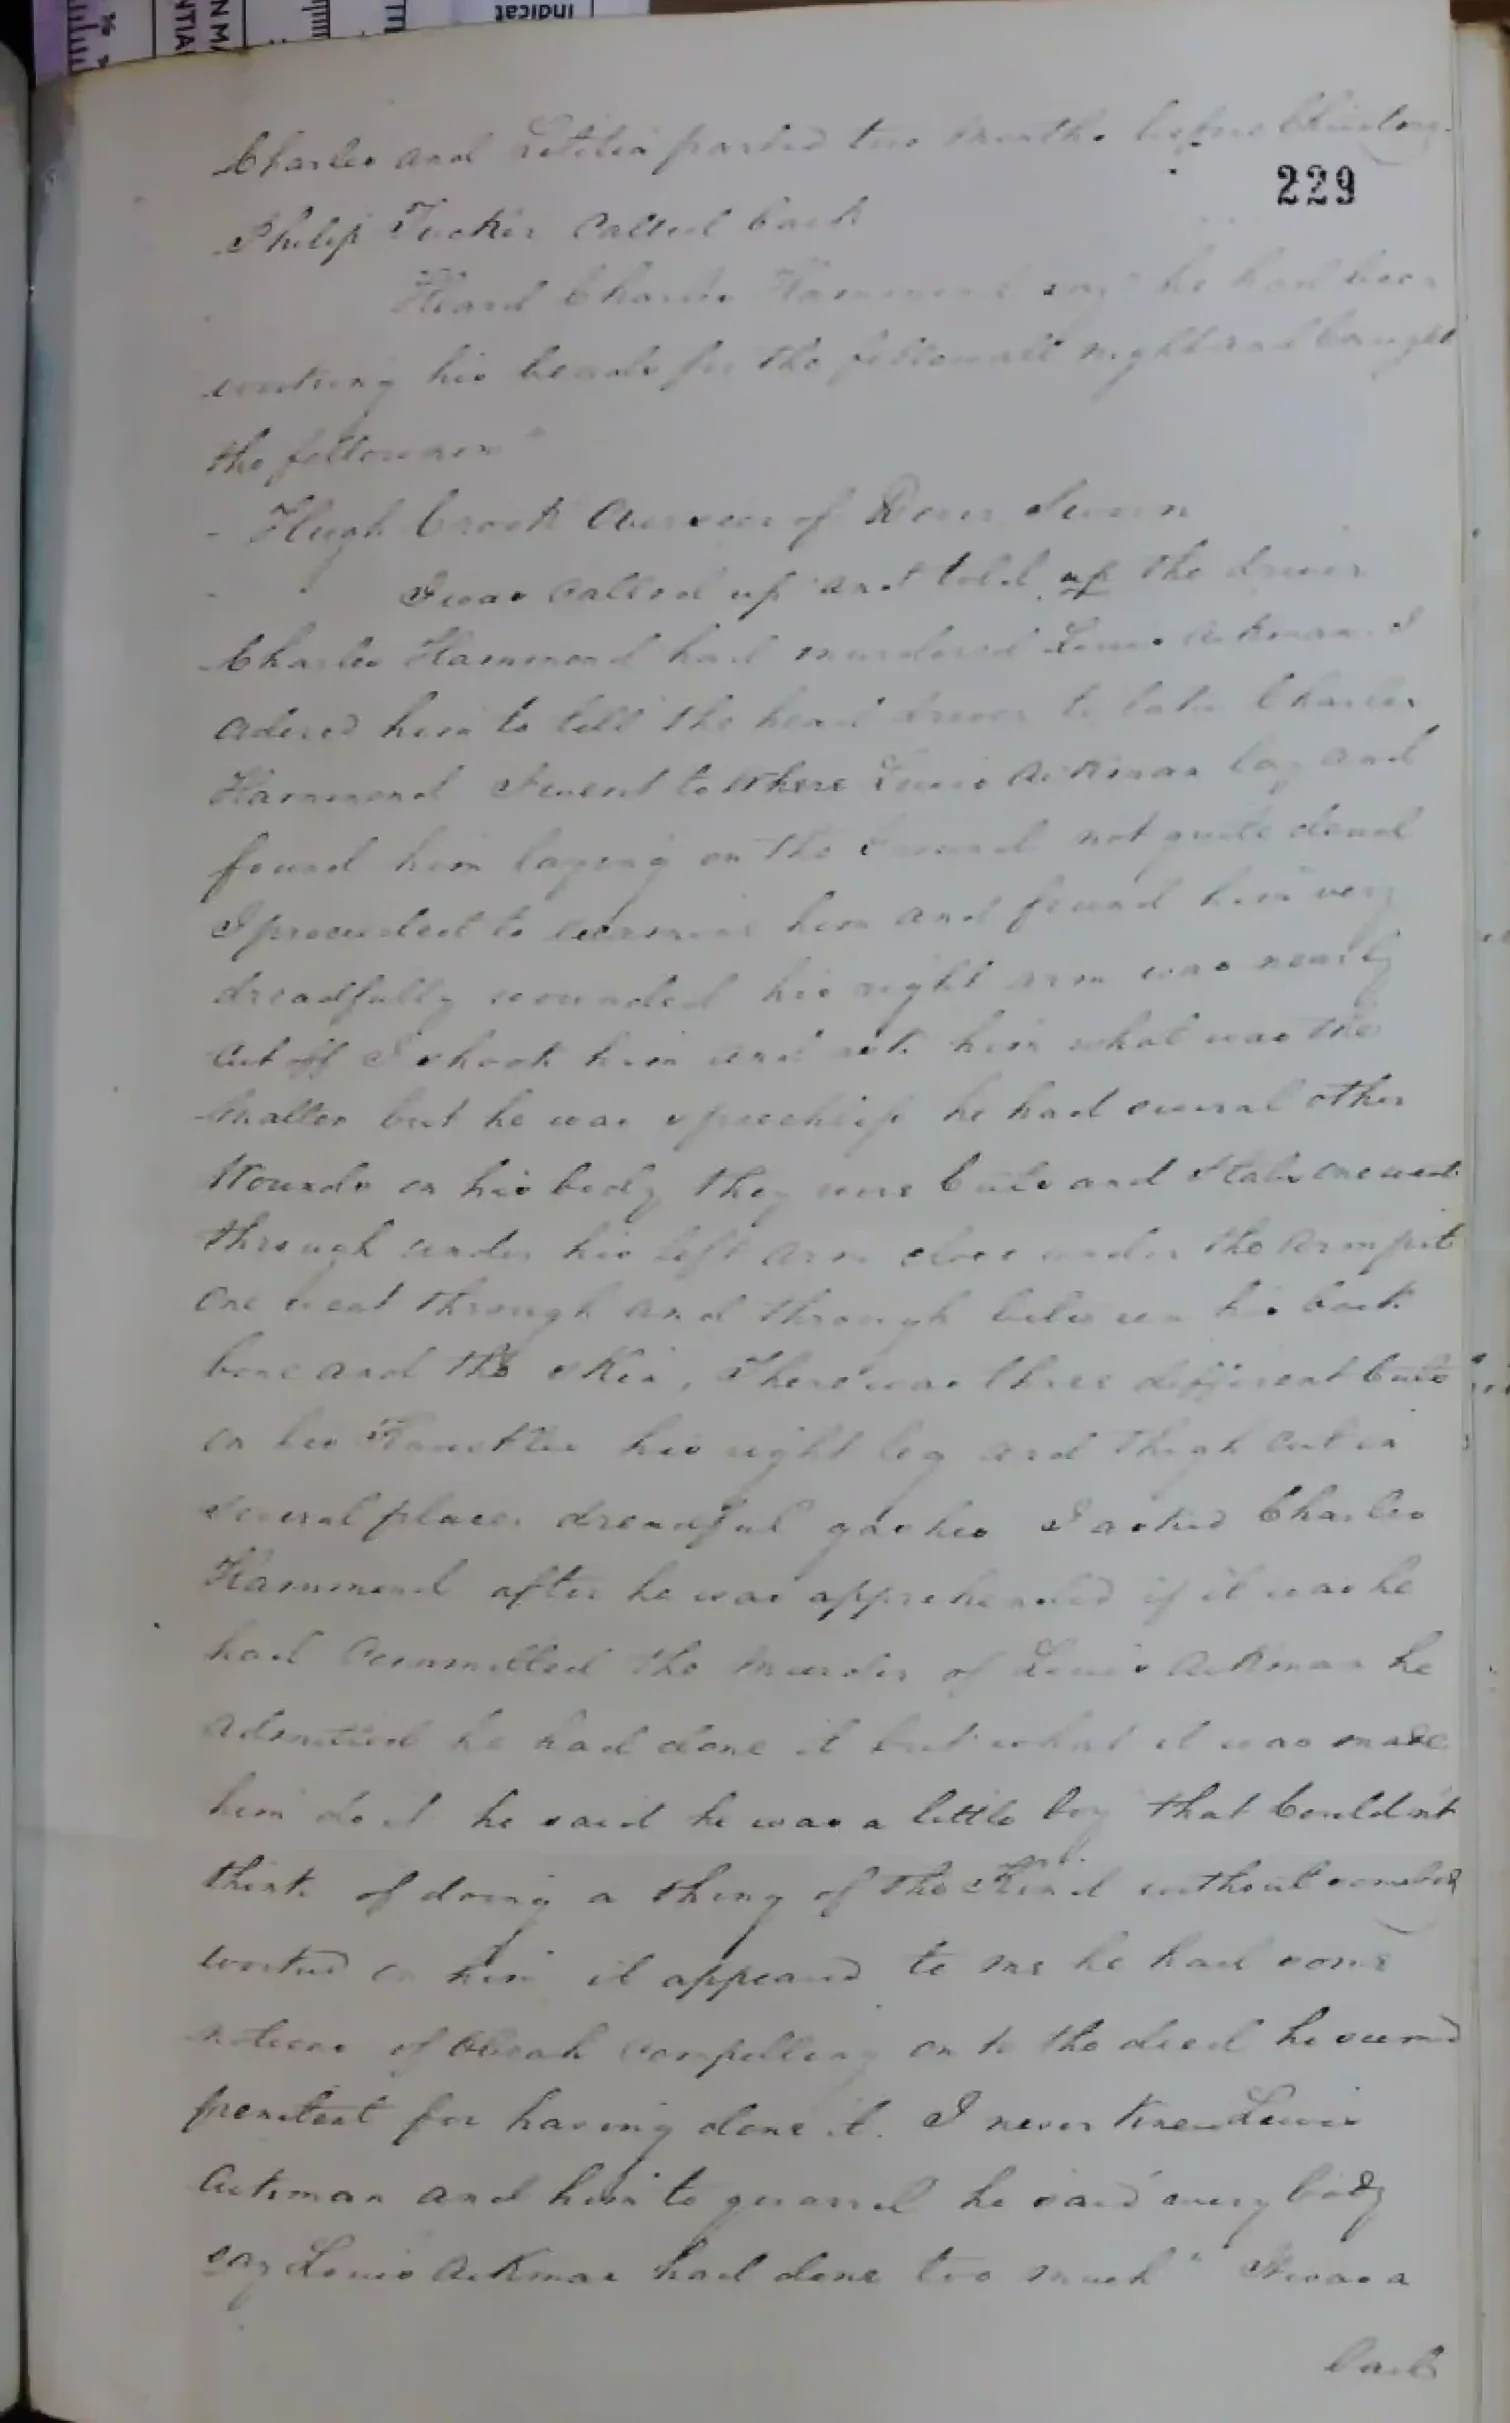 Charles and Letitia parted two months before Christmas.
229
Philip Tucker Called back
Heard Charles Hammond say "he had been
watering his beads for the fellow all night and Caught
the fellow now"
- Hugh Crook Overseer of River Sworn
I was Called up and told up the driver
Charles Hammond had murdered Lewis Aikman I
Adered him to tell the head driver to take Charles
Hammond I went to where Lewis Aikman lay and
found him laying on the Ground not quite dead
I proceeded to examine him and found him very
dreadfully wounded his right arm was nearly
Cut off I shook him and ask him what was the
Matter but he was speechless he had several other
Wounds on his body they were Cuts and Stabs one went
through under his left arm close under the armpit
One went through and through between his back
bone and the skin, There was three different Cuts
on his his right leg and thigh cut in
several places dreadful gashes I asked Charles
Hammond after he was apprehended if it was he
had Committed the Murder of Lewis Aikman he
admitted he had done it but what it was made
him do it he said he was a little boy that Couldn't
think of doing a thing of the Kind without
worked on him it appeared to me he had some
notions of Obeah compelling on to the deed he seemed
penitent for having done it. I never knew Lewis
Aikman and him to quarrel he said "every body
say Lewis Aikman had done too much" He was a